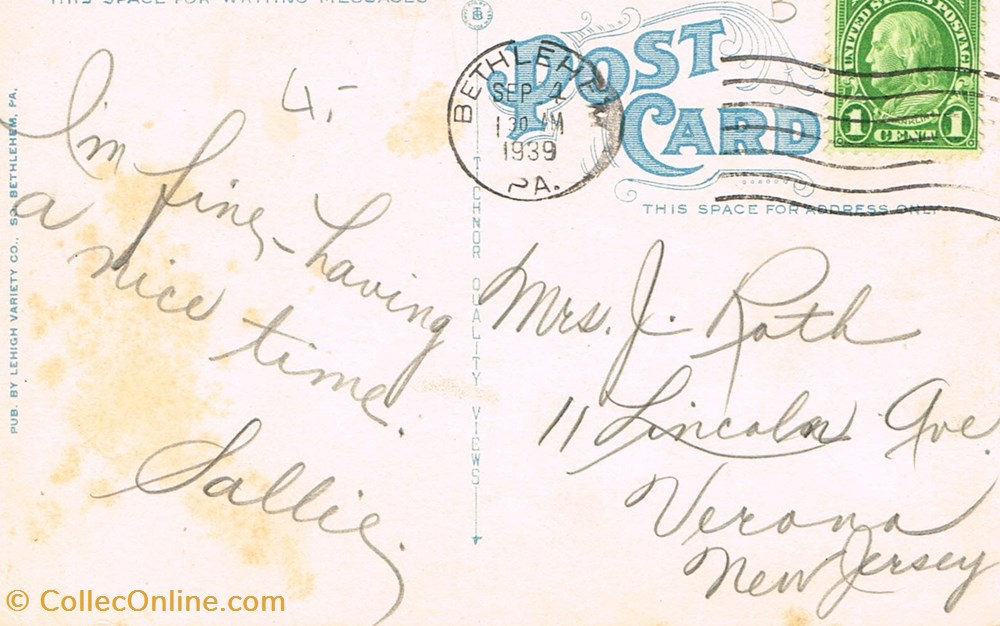 THIS SPACE FOR WRITING MESSAGES
4.-
I'm fine, - having
a nice time.
Sallie.
PUB. BY LEHIGH VARIETY CO., SO. BETHLEHEM, PA.
TECHNOR QUALITY VIEWS
POST
CARD
BETHLEHEM
SEP 4
1 30 AM
1939
PA.
UNITED STATES POSTAGE
FRANKLIN
1 CENT 1
THIS SPACE FOR ADDRESS ONLY
Mrs. J. Roth
11 Lincoln Ave.
Verona
New Jersey
© CollecOnline.com